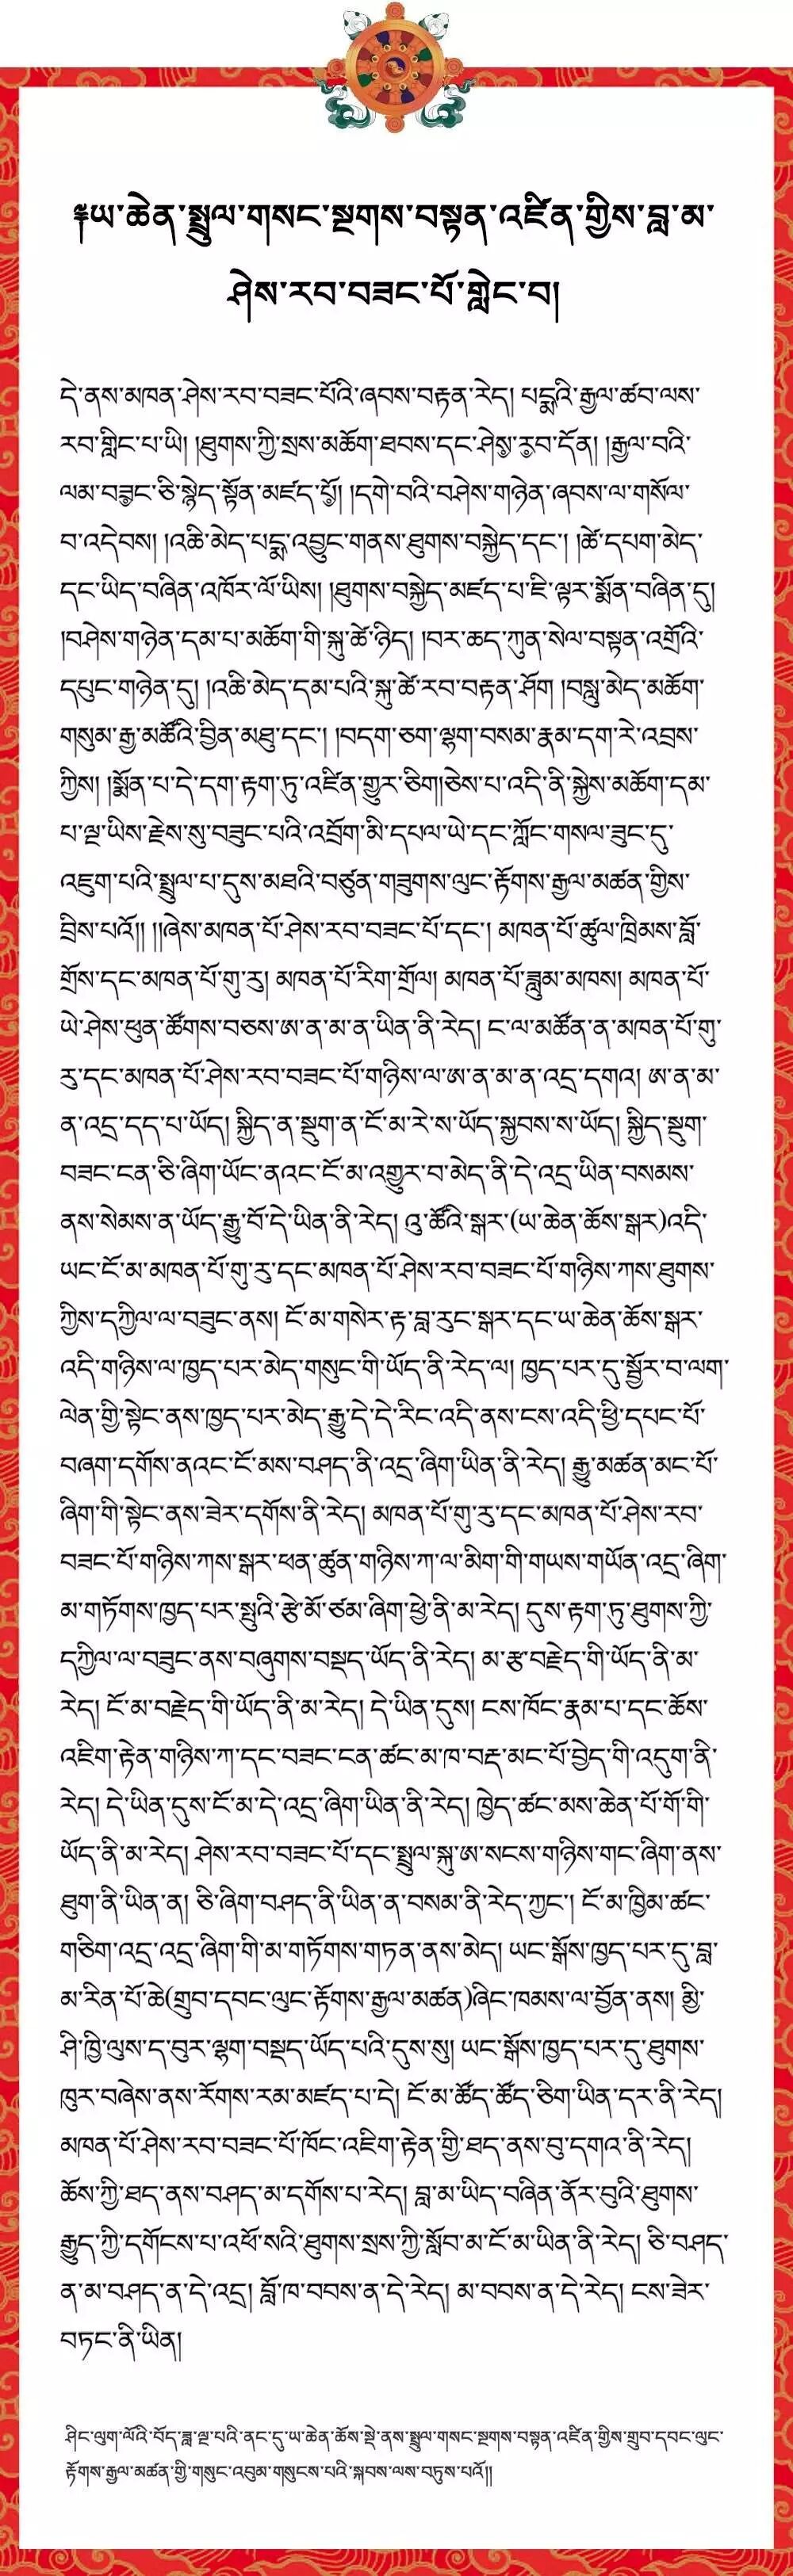 ༈ཡ་ཆེན་སྤྲུལ་གསང་སྔགས་བསྟན་འཛིན་གྱིས་བླ་མ་
ཤེས་རབ་བཟང་པོ་གླེང་བ།
དེ་ནས་མཁན་ཤེས་རབ་བཟང་པོའི་ཞབས་བརྟན་རེད། པདྨའི་རྒྱལ་ཚབ་ལས་
རབ་གླིང་པ་ཡི། །ཐུགས་ཀྱི་སྲས་མཆོག་ཐབས་དང་ཤེས༷་ར༷བ་དོན། །རྒྱལ་བའི་
ལམ་བཟ༷ང་ཅི་སྙེད་སྟོན་མཛད་པོ༷། །དགེ་བའི་བཤེས་གཉེན་ཞབས་ལ་གསོལ་
བ་འདེབས། །འཆི་མེད་པདྨ་འབྱུང་གནས་ཐུགས་བསྐྱེད་དང་། །ཚེ་དཔག་མེད་
དང་ཡིད་བཞིན་འཁོར་ལོ་ཡིས། །ཐུགས་བསྐྱེད་མཛད་པ་ཇི་ལྟར་སྨོན་བཞིན་དུ།
།བཤེས་གཉེན་དམ་པ་མཆོག་གི་སྐུ་ཚེ་ཉིད། །བར་ཆད་ཀུན་སེལ་བསྟན་འགྲོའི་
དཔུང་གཉེན་དུ། །འཆི་མེད་དམ་པའི་སྐུ་ཚེ་རབ་བརྟན་ཤོག །བསླུ་མེད་མཆོག་
གསུམ་རྒྱ་མཚོའི་བྱིན་མཐུ་དང་། །བདག་ཅག་ལྷག་བསམ་རྣམ་དག་རེ་འབྲས་
ཀྱིས། །སྨོན་པ་དེ་དག་རྟག་ཏུ་འཛིན་གྱུར་ཅིག།ཅེས་པ་འདི་ནི་སྐྱེས་མཆོག་དམ་
པ་ལྔ་ཡིས་རྗེས་སུ་བཟུང་པའི་འབྲོག་མི་དཔལ་ཡེ་དང་ཀློང་གསལ་ཟུང་དུ་
འཇུག་པའི་སྤྲུལ་པ་དུས་མཐའི་བཙུན་གཟུགས་ལུང་རྟོགས་རྒྱལ་མཚན་གྱིས་
བྲིས་པའོ།། །།ཞེས་མཁན་པོ་ཤེས་རབ་བཟང་པོ་དང་། མཁན་པོ་ཚུལ་ཁྲིམས་བློ་
གྲོས་དང་མཁན་པོ་གུ་རུ། མཁན་པོ་རིག་གྲོལ། མཁན་པོ་ཟླུམ་མཁས། མཁན་པོ་
ཡེ་ཤེས་ཕུན་ཚོགས་བཅས་ཨ་ན་མ་ན་ཡིན་ནི་རེད། ང་ལ་མཚོན་ན་མཁན་པོ་གུ་
རུ་དང་མཁན་པོ་ཤེས་རབ་བཟང་པོ་གཉིས་ལ་ཨ་ན་མ་ན་འདྲ་དགའ། ཨ་ན་མ་
ན་འདྲ་དད་པ་ཡོད། སྐྱིད་ན་སྡུག་ན་ངོ་མ་རེ་ས་ཡོད་སྐྱབས་ས་ཡོད། སྐྱིད་སྡུག་
བཟང་ངན་ཅི་ཞིག་ཡོང་ནའང་ངོ་མ་འགྱུར་བ་མེད་ནི་དེ་འདྲ་ཡིན་བསམས་
ནས་སེམས་ན་ཡོད་རྒྱུ་བོ་དེ་ཡིན་ནི་རེད། འུ་ཚོའི་སྒར་(ཡ་ཆེན་ཆོས་སྒར)འདི་
ཡང་ངོ་མ་མཁན་པོ་གུ་རུ་དང་མཁན་པོ་ཤེས་རབ་བཟང་པོ་གཉིས་ཀས་ཐུགས་
ཀྱིས་དཀྱིལ་ལ་བཟུང་ནས། ངོ་མ་གསེར་རྟ་བླ་རུང་སྒར་དང་ཡ་ཆེན་ཆོས་སྒར་
འདི་གཉིས་ལ་ཁྱད་པར་མེད་གསུང་གི་ཡོད་ནི་རེད་ལ། ཁྱད་པར་དུ་སྦྱོར་བ་ལག་
ལེན་གྱི་སྟེང་ནས་ཁྱད་པར་མེད་རྒྱུ་དེ་དེ་རིང་འདི་ནས་ངས་འདི་ཕྱི་དཔང་པོ་
བཞག་དགོས་ནའང་ངོ་མས་བཤད་ནི་འདྲ་ཞིག་ཡིན་ནི་རེད། རྒྱུ་མཚན་མང་པོ་
ཞིག་གི་སྟེང་ནས་ཟེར་དགོས་ནི་རེད། མཁན་པོ་གུ་རུ་དང་མཁན་པོ་ཤེས་རབ་
བཟང་པོ་གཉིས་ཀས་སྒར་ཕན་ཚུན་གཉིས་ཀ་ལ་མིག་གི་གཡས་གཡོན་འདྲ་ཞིག་
མ་གཏོགས་ཁྱད་པར་སྤུའི་རྩེ་མོ་ཙམ་ཞིག་ཕྱེ་ནི་མ་རེད། དུས་རྟག་ཏུ་ཐུགས་ཀྱི་
དཀྱིལ་ལ་བཟུང་ནས་བཞུགས་བསྡད་ཡོད་ནི་རེད། མ་རྩ་བརྗེད་གི་ཡོད་ནི་མ་
རེད། ངོ་མ་བརྗེད་གི་ཡོད་ནི་མ་རེད། དེ་ཡིན་དུས། ངས་ཁོང་རྣམ་པ་དང་ཆོས་
འཇིག་རྟེན་གཉིས་ཀ་དང་བཟང་ངན་ཚང་མ་ཁ་བརྡ་མང་པོ་བྱེད་གི་འདུག་ནི་
རེད། དེ་ཡིན་དུས་ངོ་མ་དེ་འདྲ་ཞིག་ཡིན་ནི་རེད། ཁྱེད་ཚང་མས་ཆེན་པོ་གོ་གི་
ཡོད་ནི་མ་རེད། ཤེས་རབ་བཟང་པོ་དང་སྤྲུལ་སྐུ་ཨ་སངས་གཉིས་གང་ཞིག་ནས་
ཐུག་ནི་ཡིན་ན། ཅི་ཞིག་བཤད་ནི་ཡིན་ན་བསམ་ནི་རེད་ཀྱང་། ངོ་མ་ཁྱིམ་ཚང་
གཅིག་འདྲ་འདྲ་ཞིག་གི་མ་གཏོགས་གཏན་ནས་མེད། ཡང་སྒོས་ཁྱད་པར་དུ་བླ་
མ་རིན་པོ་ཆེ(གྲུབ་དབང་ལུང་རྟོགས་རྒྱལ་མཚན)ཞིང་ཁམས་ལ་བྱོན་ནས། མྱི་
ཤི་ཁྱི་ལུས་ད་བུར་ལྷག་བསྡད་ཡོད་པའི་དུས་སུ། ཡང་སྒོས་ཁྱད་པར་དུ་ཐུགས་
ཁུར་བཞེས་ནས་རོགས་རམ་མཛད་པ་དེ། ངོ་མ་ཚོད་ཚོད་ཅིག་ཡིན་དར་ནི་རེད།
མཁན་པོ་ཤེས་རབ་བཟང་པོ་ཁོང་འཇིག་རྟེན་གྱི་ཐད་ནས་བུ་དགའ་ནི་རེད།
ཆོས་ཀྱི་ཐད་ནས་བཤད་མ་དགོས་པ་རེད། བླ་མ་ཡིད་བཞིན་ནོར་བུའི་ཐུགས་
རྒྱུད་ཀྱི་དགོངས་པ་འཕོ་སའི་ཐུགས་སྲས་ཀྱི་སློབ་མ་ངོ་མ་ཡིན་ནི་རེད། ཅི་བཤད་
ན་མ་བཤད་ན་དེ་འདྲ། བློ་ཁ་བབས་ན་དེ་རེད། མ་བབས་ན་དེ་རེད། ངས་ཟེར་
བཏང་ནི་ཡིན།
ཤིང་ལུག་ལོའི་བོད་ཟླ་ལྔ་པའི་ནང་དུ་ཡ་ཆེན་ཆོས་སྡེ་ནས་སྤྲུལ་གསང་སྔགས་བསྟན་འཛིན་གྱིས་གྲུབ་དབང་ལུང་
རྟོགས་རྒྱལ་མཚན་གྱི་གསུང་འབུམ་གསུངས་པའི་སྐབས་ལས་བཏུས་པའོ།།